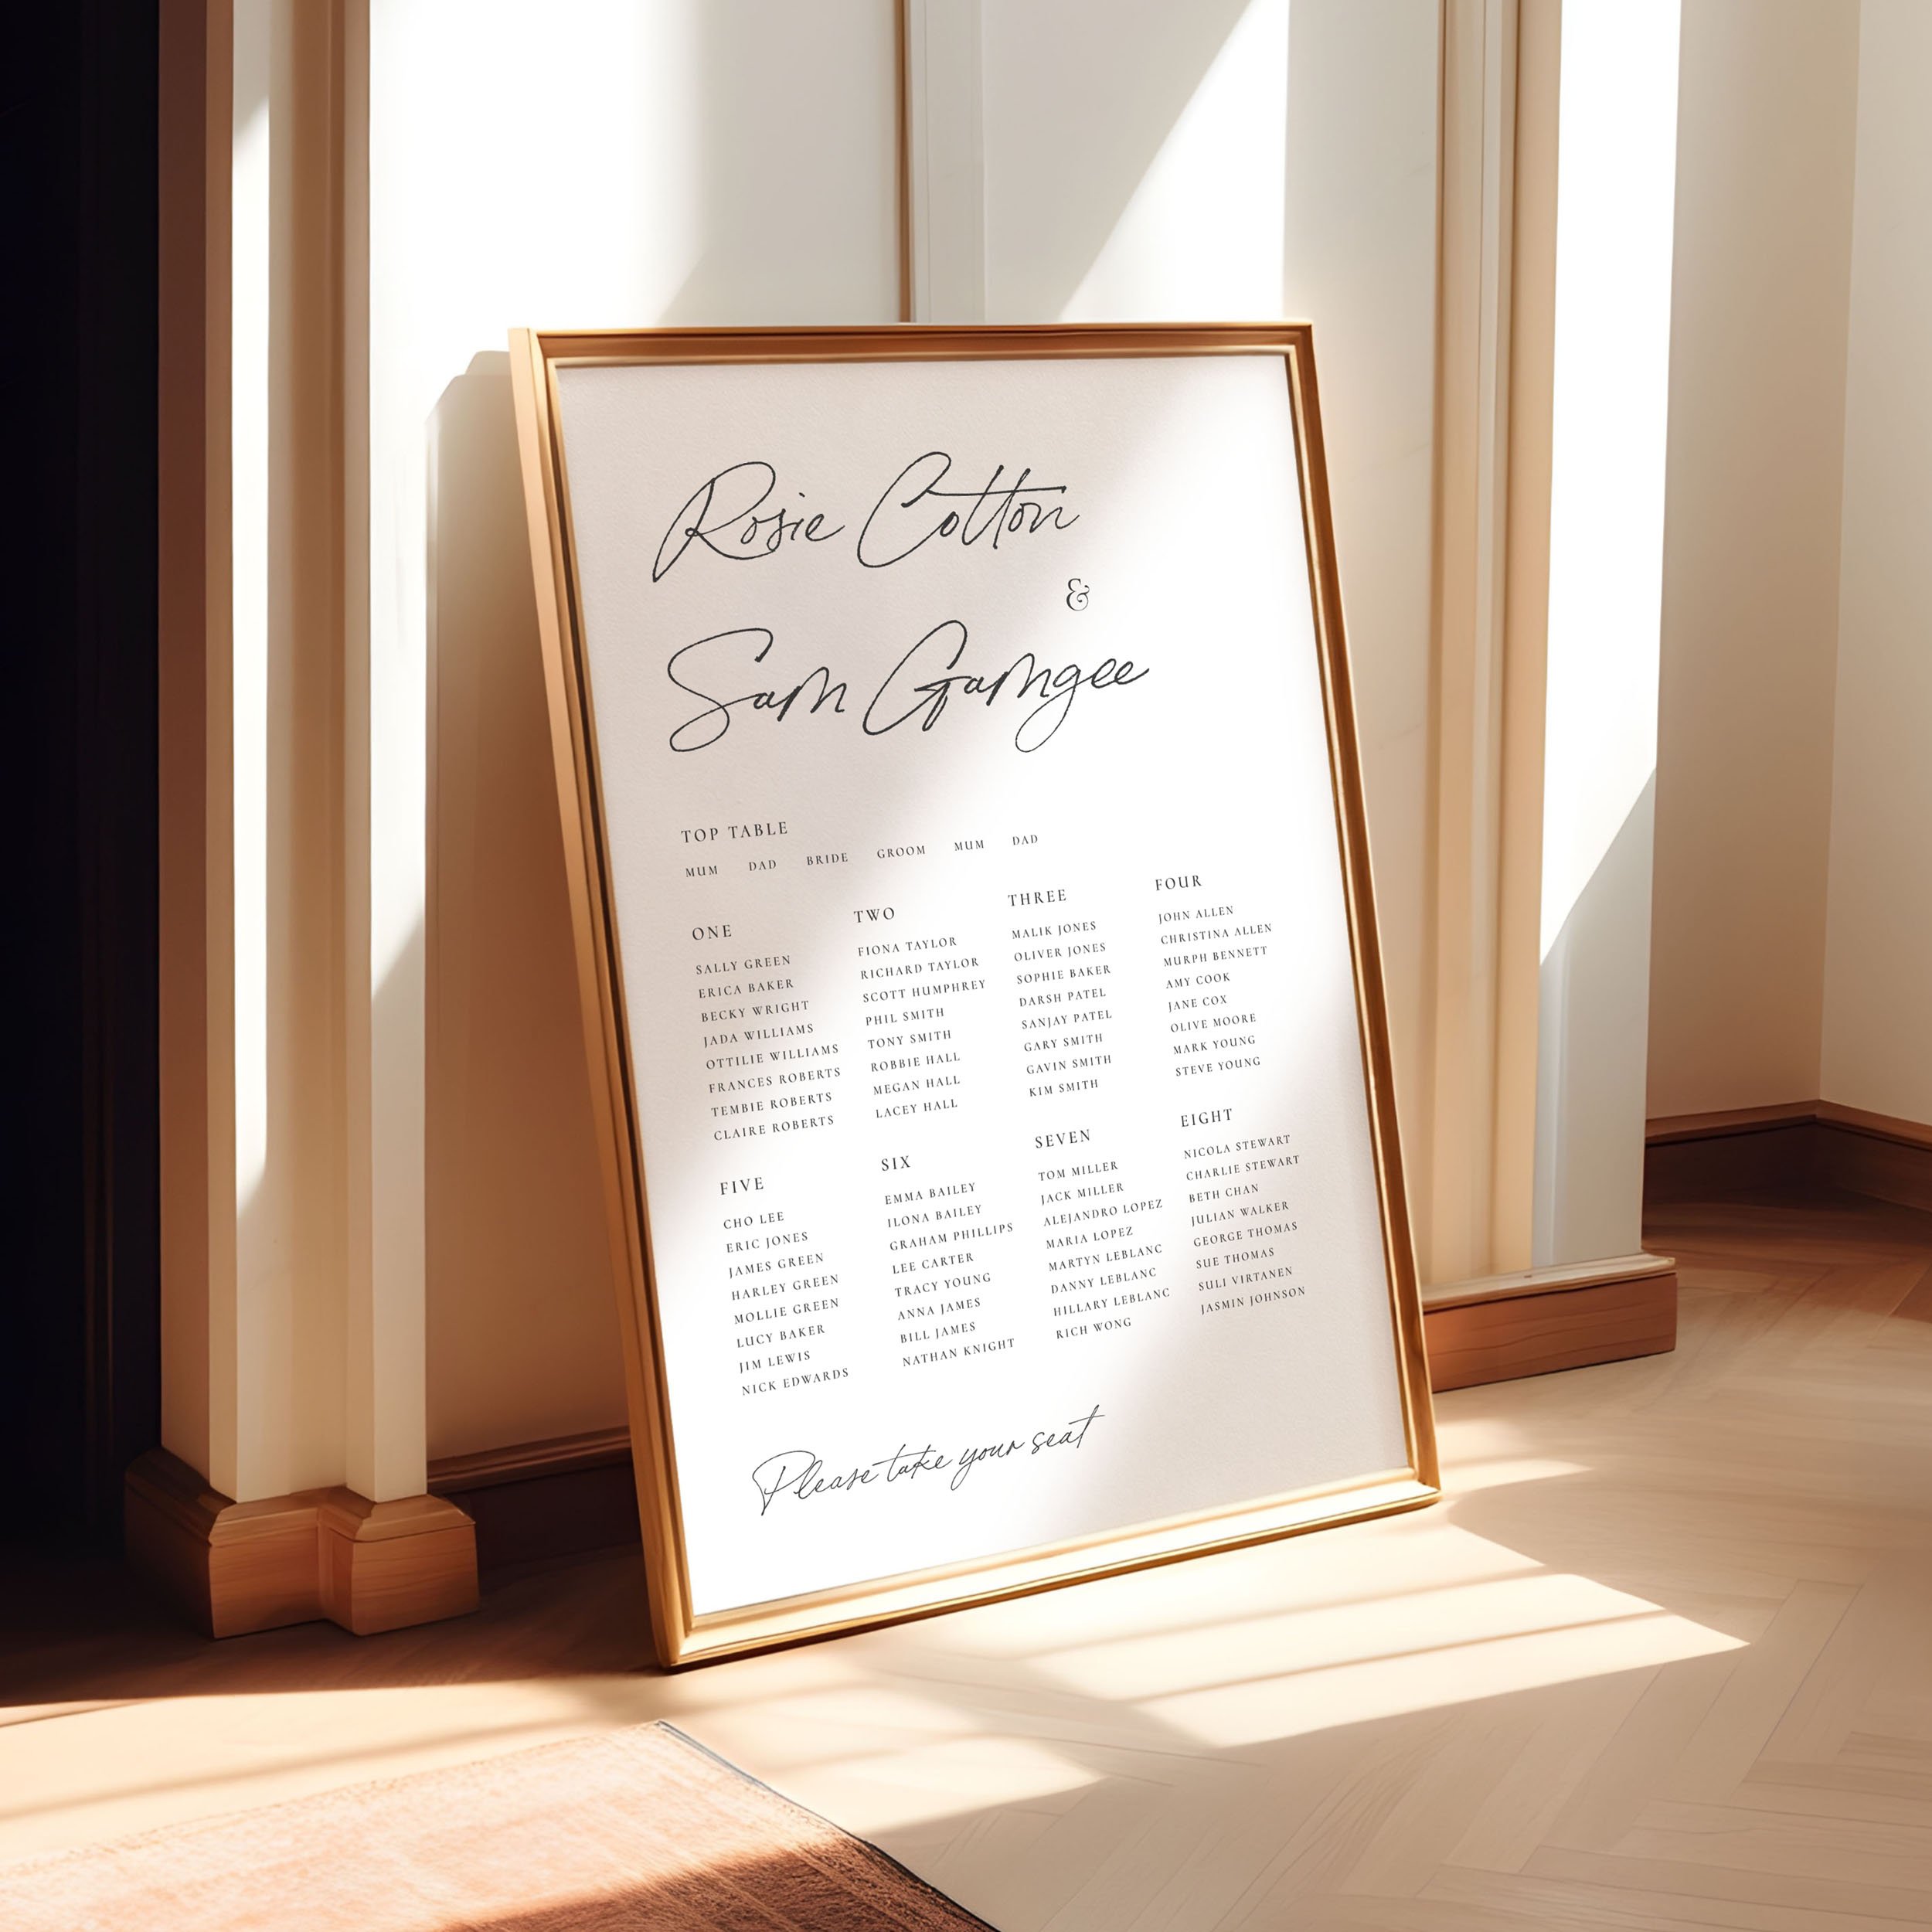 Rosie Cotton
&
Sam Gamgee
TOP TABLE
MUM DAD BRIDE GROOM MUM DAD
ONE
SALLY GREEN
ERICA BAKER
BECKY WRIGHT
JADA WILLIAMS
OTTILIE WILLIAMS
FRANCES ROBERTS
TEMBIE ROBERTS
CLAIRE ROBERTS
TWO
FIONA TAYLOR
RICHARD TAYLOR
SCOTT HUMPHREY
PHIL SMITH
TONY SMITH
ROBBIE HALL
MEGAN HALL
LACEY HALL
THREE
MALIK JONES
OLIVER JONES
SOPHIE BAKER
DARSH PATEL
SANJAY PATEL
GARY SMITH
GAVIN SMITH
KIM SMITH
FOUR
JOHN ALLEN
CHRISTINA ALLEN
MURPH BENNETT
AMY COOK
JANE COX
OLIVE MOORE
MARK YOUNG
STEVE YOUNG
FIVE
CHO LEE
ERIC JONES
JAMES GREEN
HARLEY GREEN
MOLLIE GREEN
LUCY BAKER
JIM LEWIS
NICK EDWARDS
SIX
EMMA BAILEY
ILONA BAILEY
GRAHAM PHILLIPS
LEE CARTER
TRACY YOUNG
ANNA JAMES
BILL JAMES
NATHAN KNIGHT
SEVEN
TOM MILLER
JACK MILLER
ALEJANDRO LOPEZ
MARIA LOPEZ
MARTYN LEBLANC
DANNY LEBLANC
HILLARY LEBLANC
RICH WONG
EIGHT
NICOLA STEWART
CHARLIE STEWART
BETH CHAN
JULIAN WALKER
GEORGE THOMAS
SUE THOMAS
SULI VIRTANEN
JASMIN JOHNSON
Please take your seat